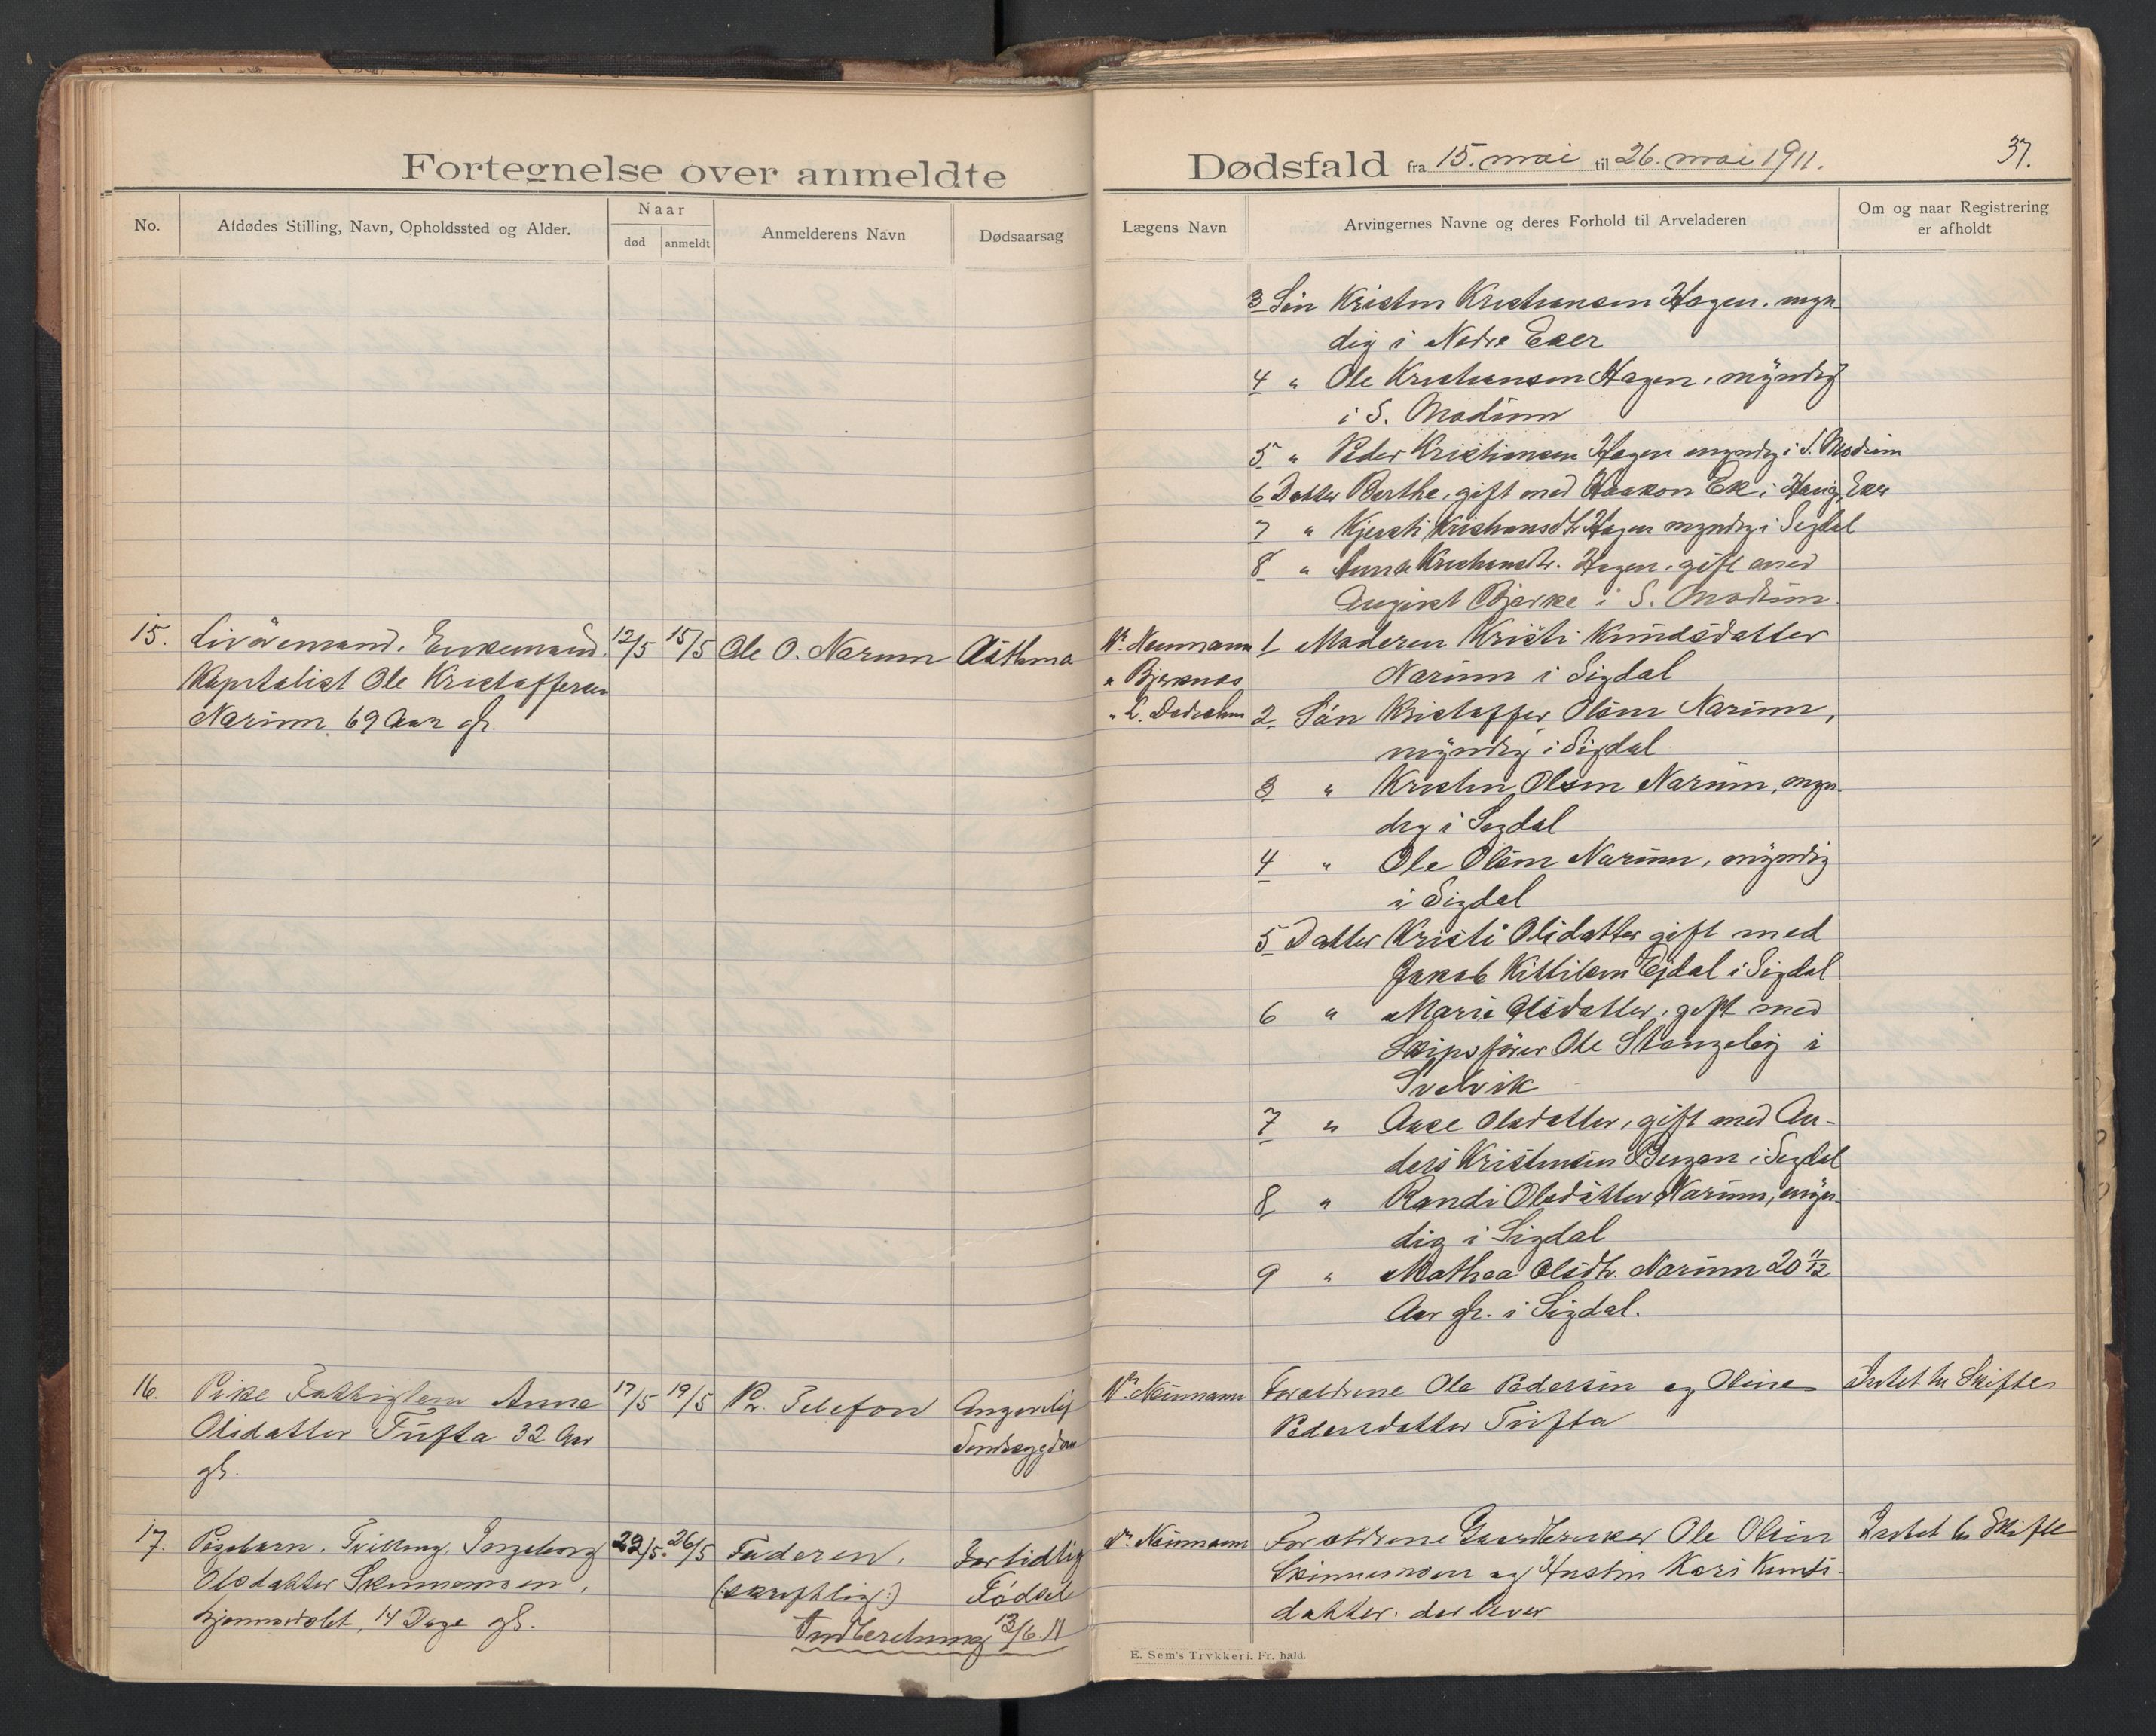 Fortegnelse over anmeldte
Dødsfald fra 15. mai til 26. mai 1911.
37.
No.
Afdødes Stilling, Navn, Opholdssted og Alder.
Naar
død
anmeldt
Anmelderens Navn
Dødsaarsag
Lægens Navn
Arvingernes Navne og deres Forhold til Arveladeren
Om og naar Registrering
er afholdt
3 Sön Kristen Kristiansen Hagen. myn-
dig i Nedre Eker
4 " Ole Kristiansen Hagen, myndig
i S. Modum
5 " Peder Kristiansen Hagen myndig i S. Modum
6 Datter Berthe, gift med Haakon Ek i Haug, Eker
7 " Kjersti Kristiansdtr Hagen myndig i Sigdal
8 " Anna Kristiansdtr. Hagen, gift med
August Bjerke i S. Modum.
15. Livöremand, Enkemand, 12/5 15/5 Ole O. Narum Asthma
Kapitalist Ole Kristoffersen
Narum, 69 Aar gl.
Dr. Neumann
" Bjerknes
1 Moderen Kristi Knudsdatter
Narum i Sigdal
2 Sön Kristoffer Olsen Narum,
myndig i Sigdal
3 " Kristen Olsen Narum, myn-
dig i Sigdal
4 " Ole Olsen Narum, myndig
i Sigdal
5 Datter Kristi Olsdatter gift med
Jakob Kittilsen Ejdal i Sigdal
6 " Marie Olsdatter, gift med
Skipsförer Ole Stangeby i
Svelvik
7 " Aase Olsdatter, gift med An-
ders Kristensen Bergan i Sigdal
8 " Randi Olsdatter Narum, myn-
dig i Sigdal
9 " Mathea Olsdtr. Narum 20 11/12
Aar gl. i Sigdal.
16. Pike Fattiglem Anne 17/5 19/5 Pr. Telefon Angivelig
Olsdatter Tufta 32 Aar
gl.
Sindssygdom
Dr. Neumann Forældrene Ole Pedersen og Oline
Pedersdatter Tufta
Intet til Skifte
17. Pigebarn, Tvilling, Ingeborg 22/5 26/5 Faderen, For tidlig
Olsdatter Skinnemoen, (skriftlig:) Födsel
hjemmedöbt, 14 Dage gl.
Indberetning 13/6. 11
Dr. Neumann Forældrene Gaardbruker Ole Olsen
Skinnemoen og Hustru Kari Knuds-
datter. der lever
Intet til Skifte
E. Sem's Trykkeri. Fr. hald.